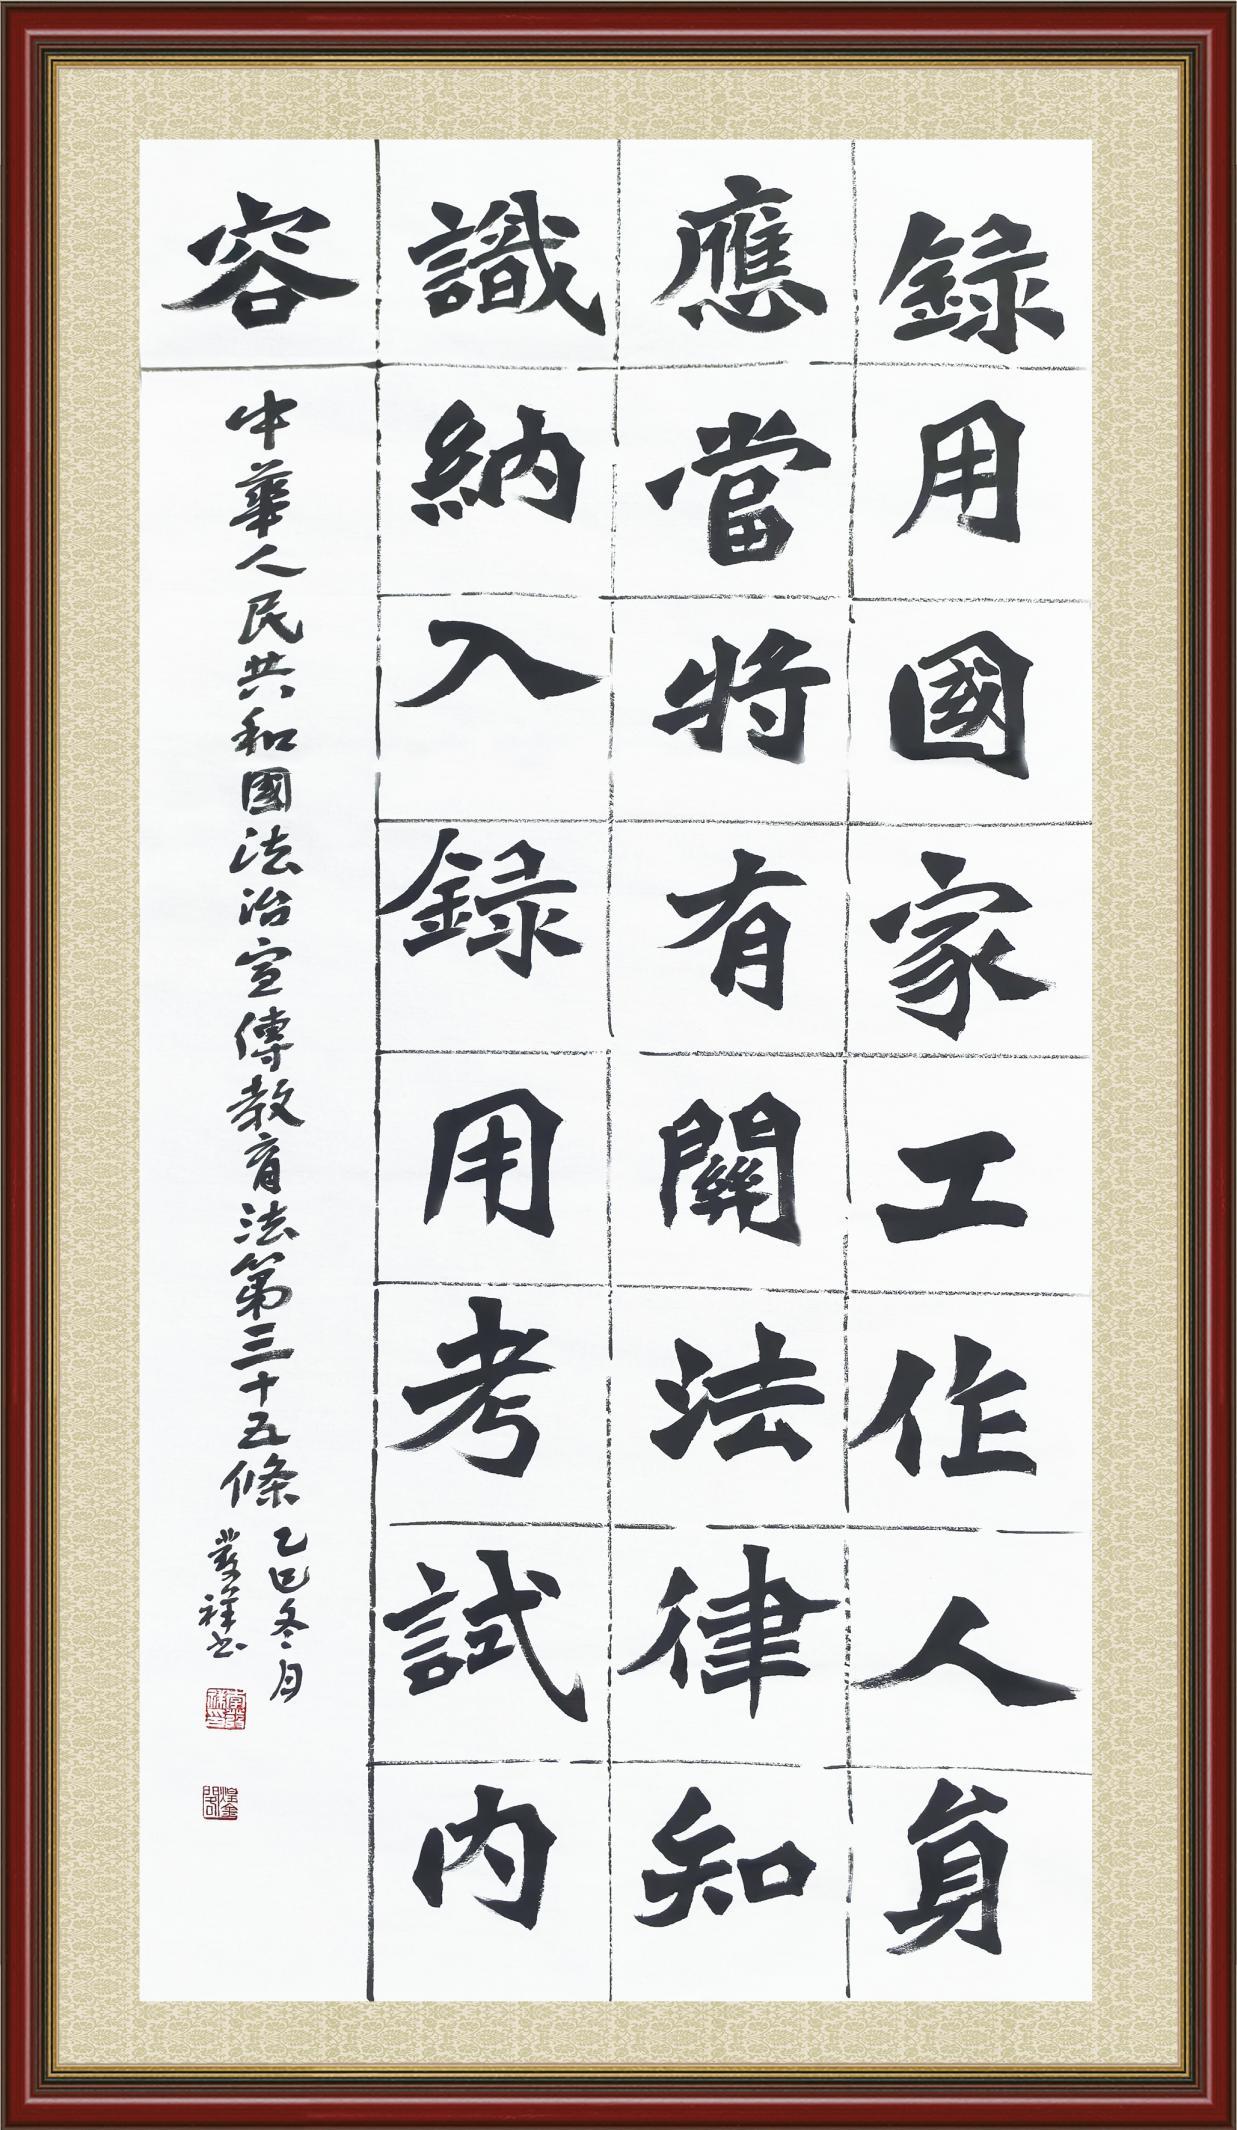 錄用國家工作人員
應當將有關法律知
識納入錄用考試內
容
中華人民共和國法治宣傳教育法第三十五條
乙巳冬月
發祥书